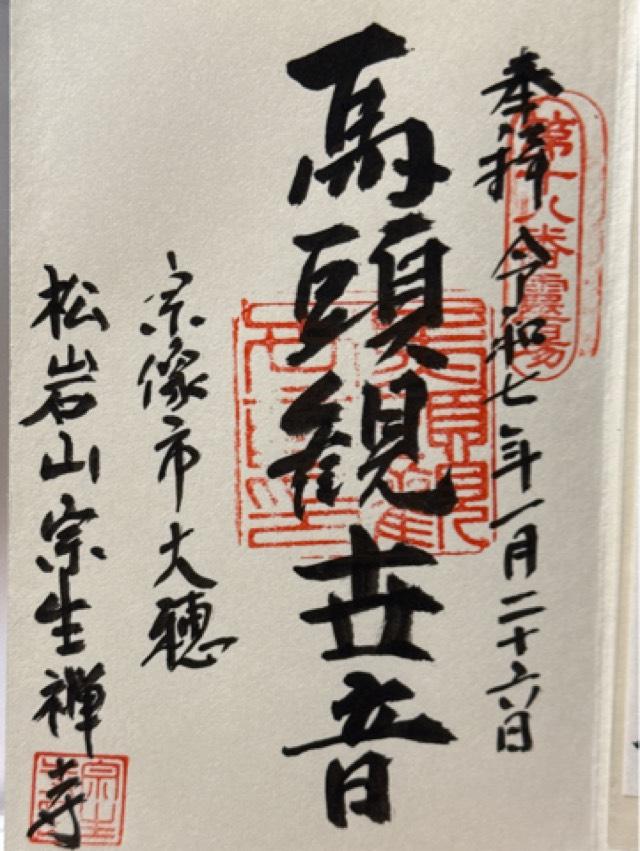 奉拝 令和七年一月二十六日
第十八番霊場
馬頭観世音
宗像市大穂
松岩山宗生禅寺